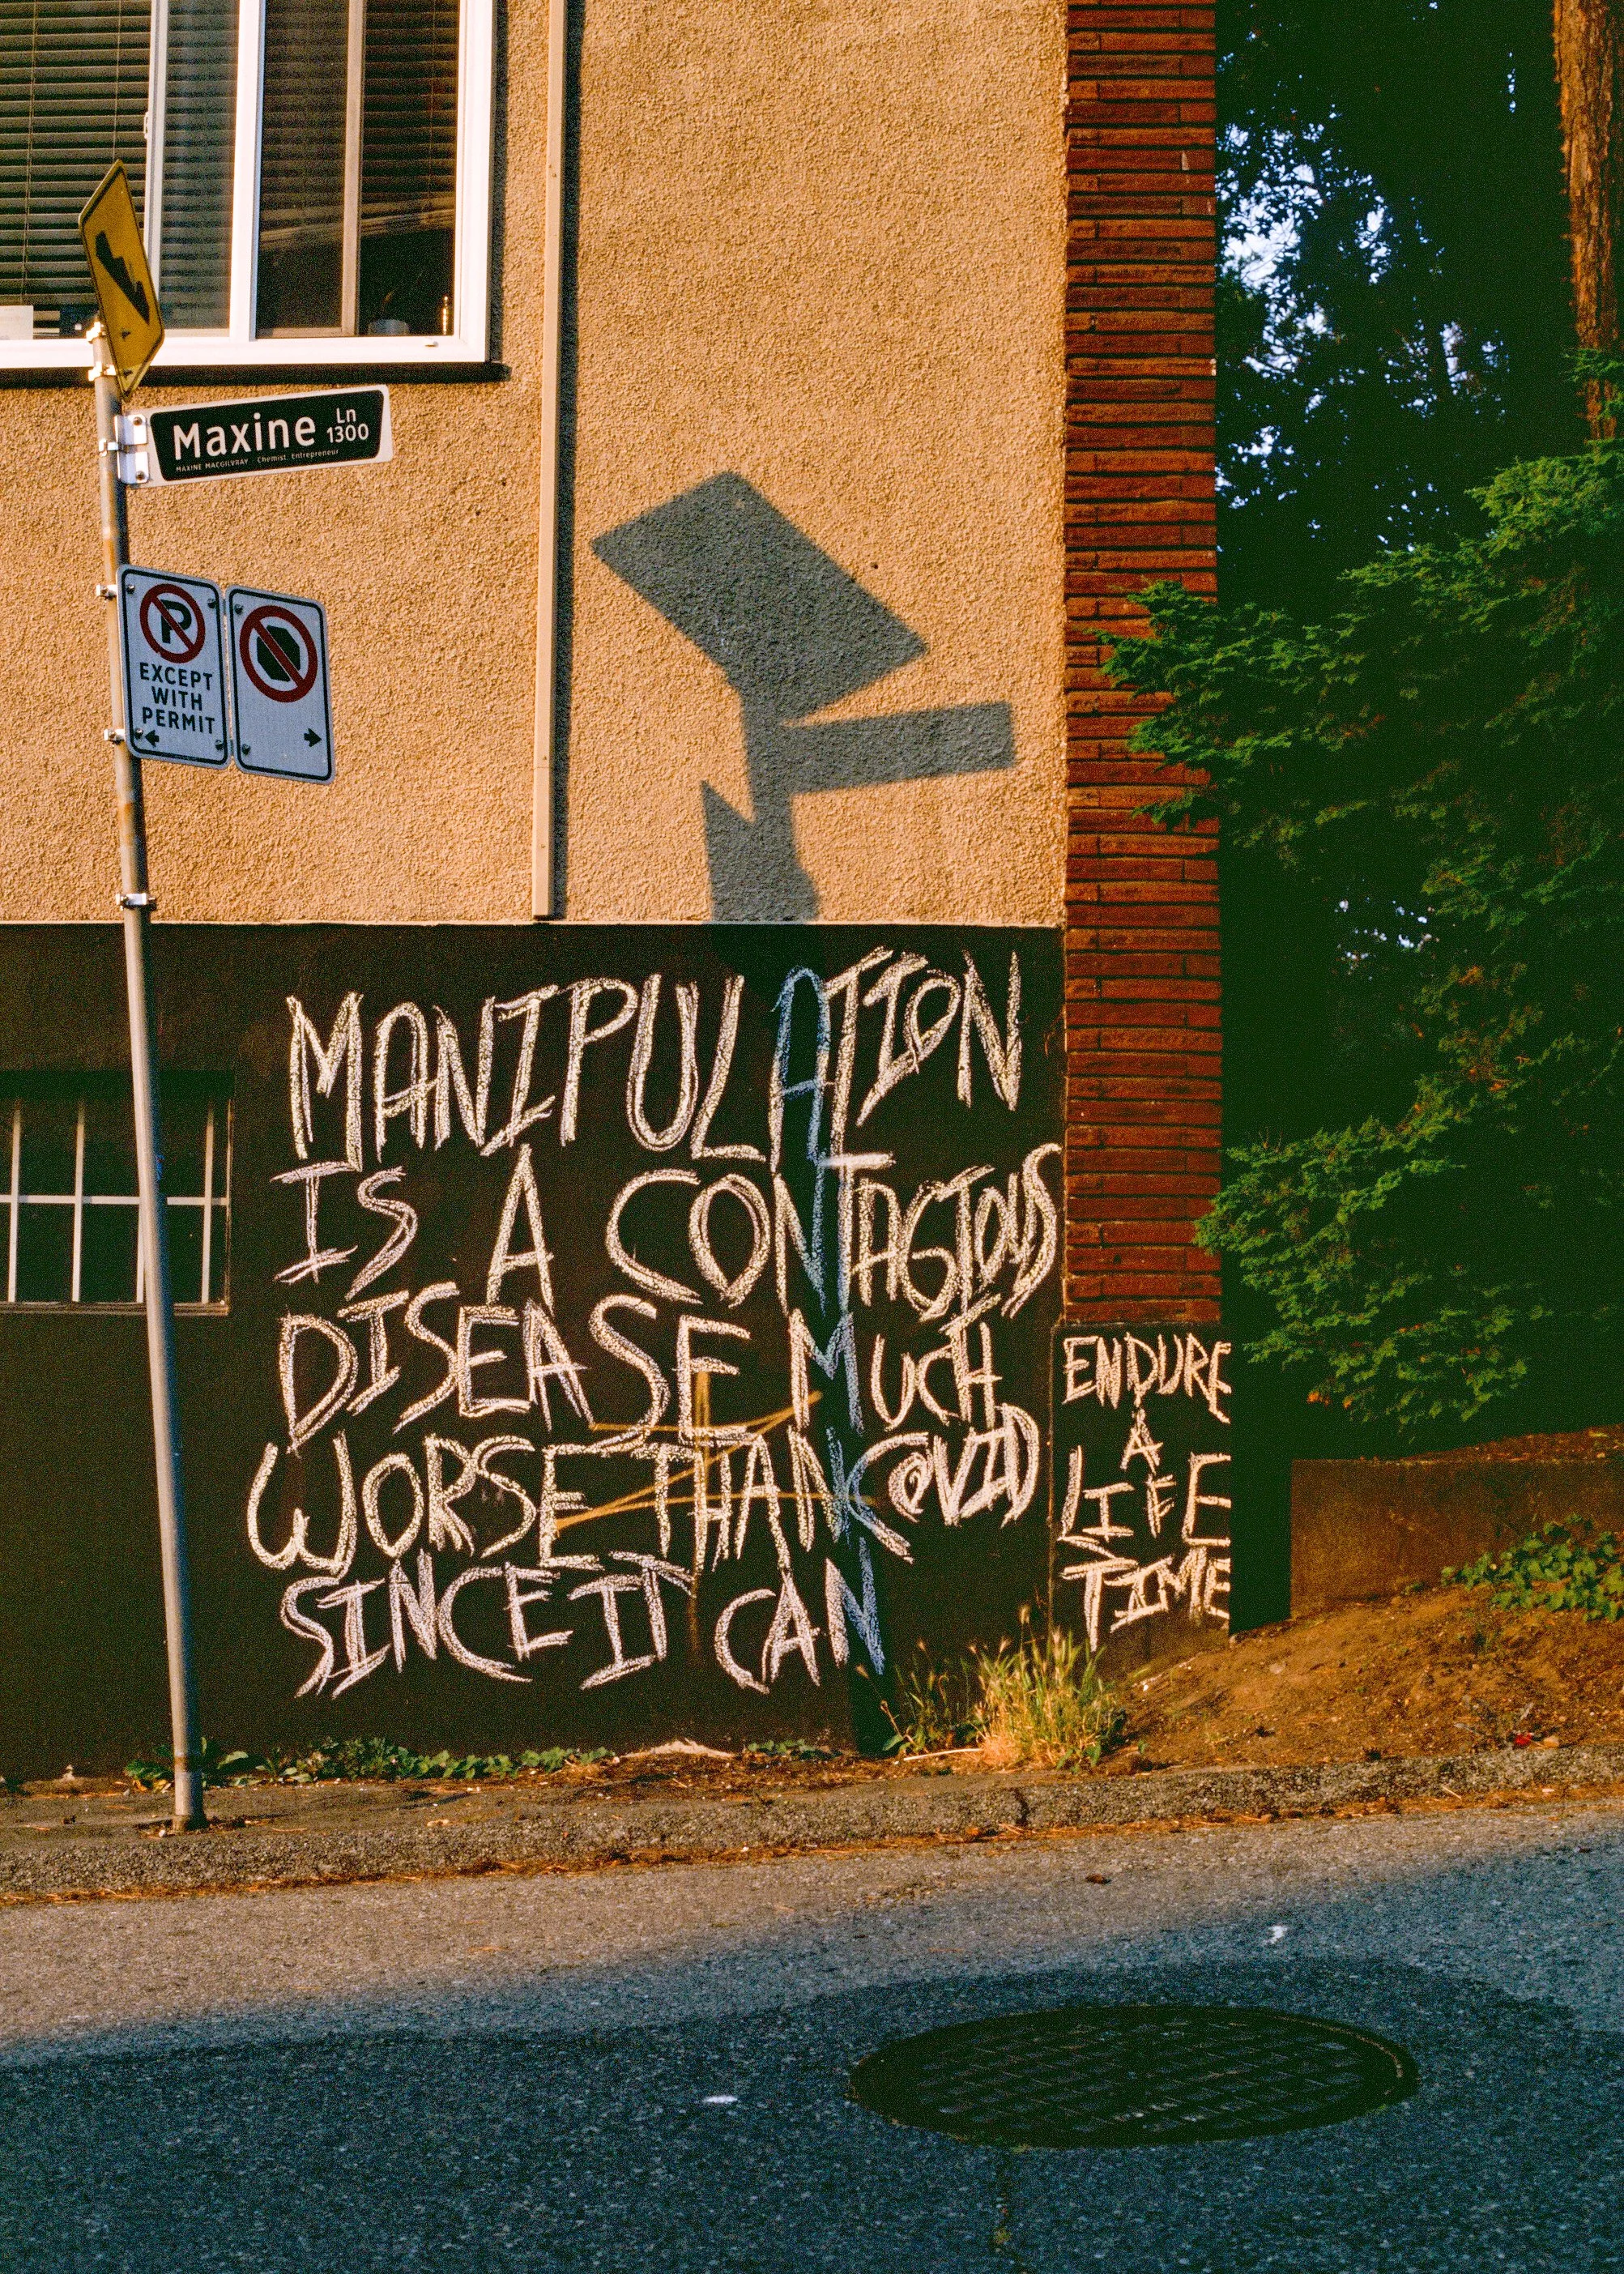 Maxine Ln
1300
MAXINE MACGILVRAY Chemist, Entrepreneur
P
EXCEPT
WITH
PERMIT
MANIPULATION
IS A CONTAGIOUS
DISEASE MUCH
WORSE THAN COVID
SINCE IT CAN
ENDURE
A
LIFE
TIME